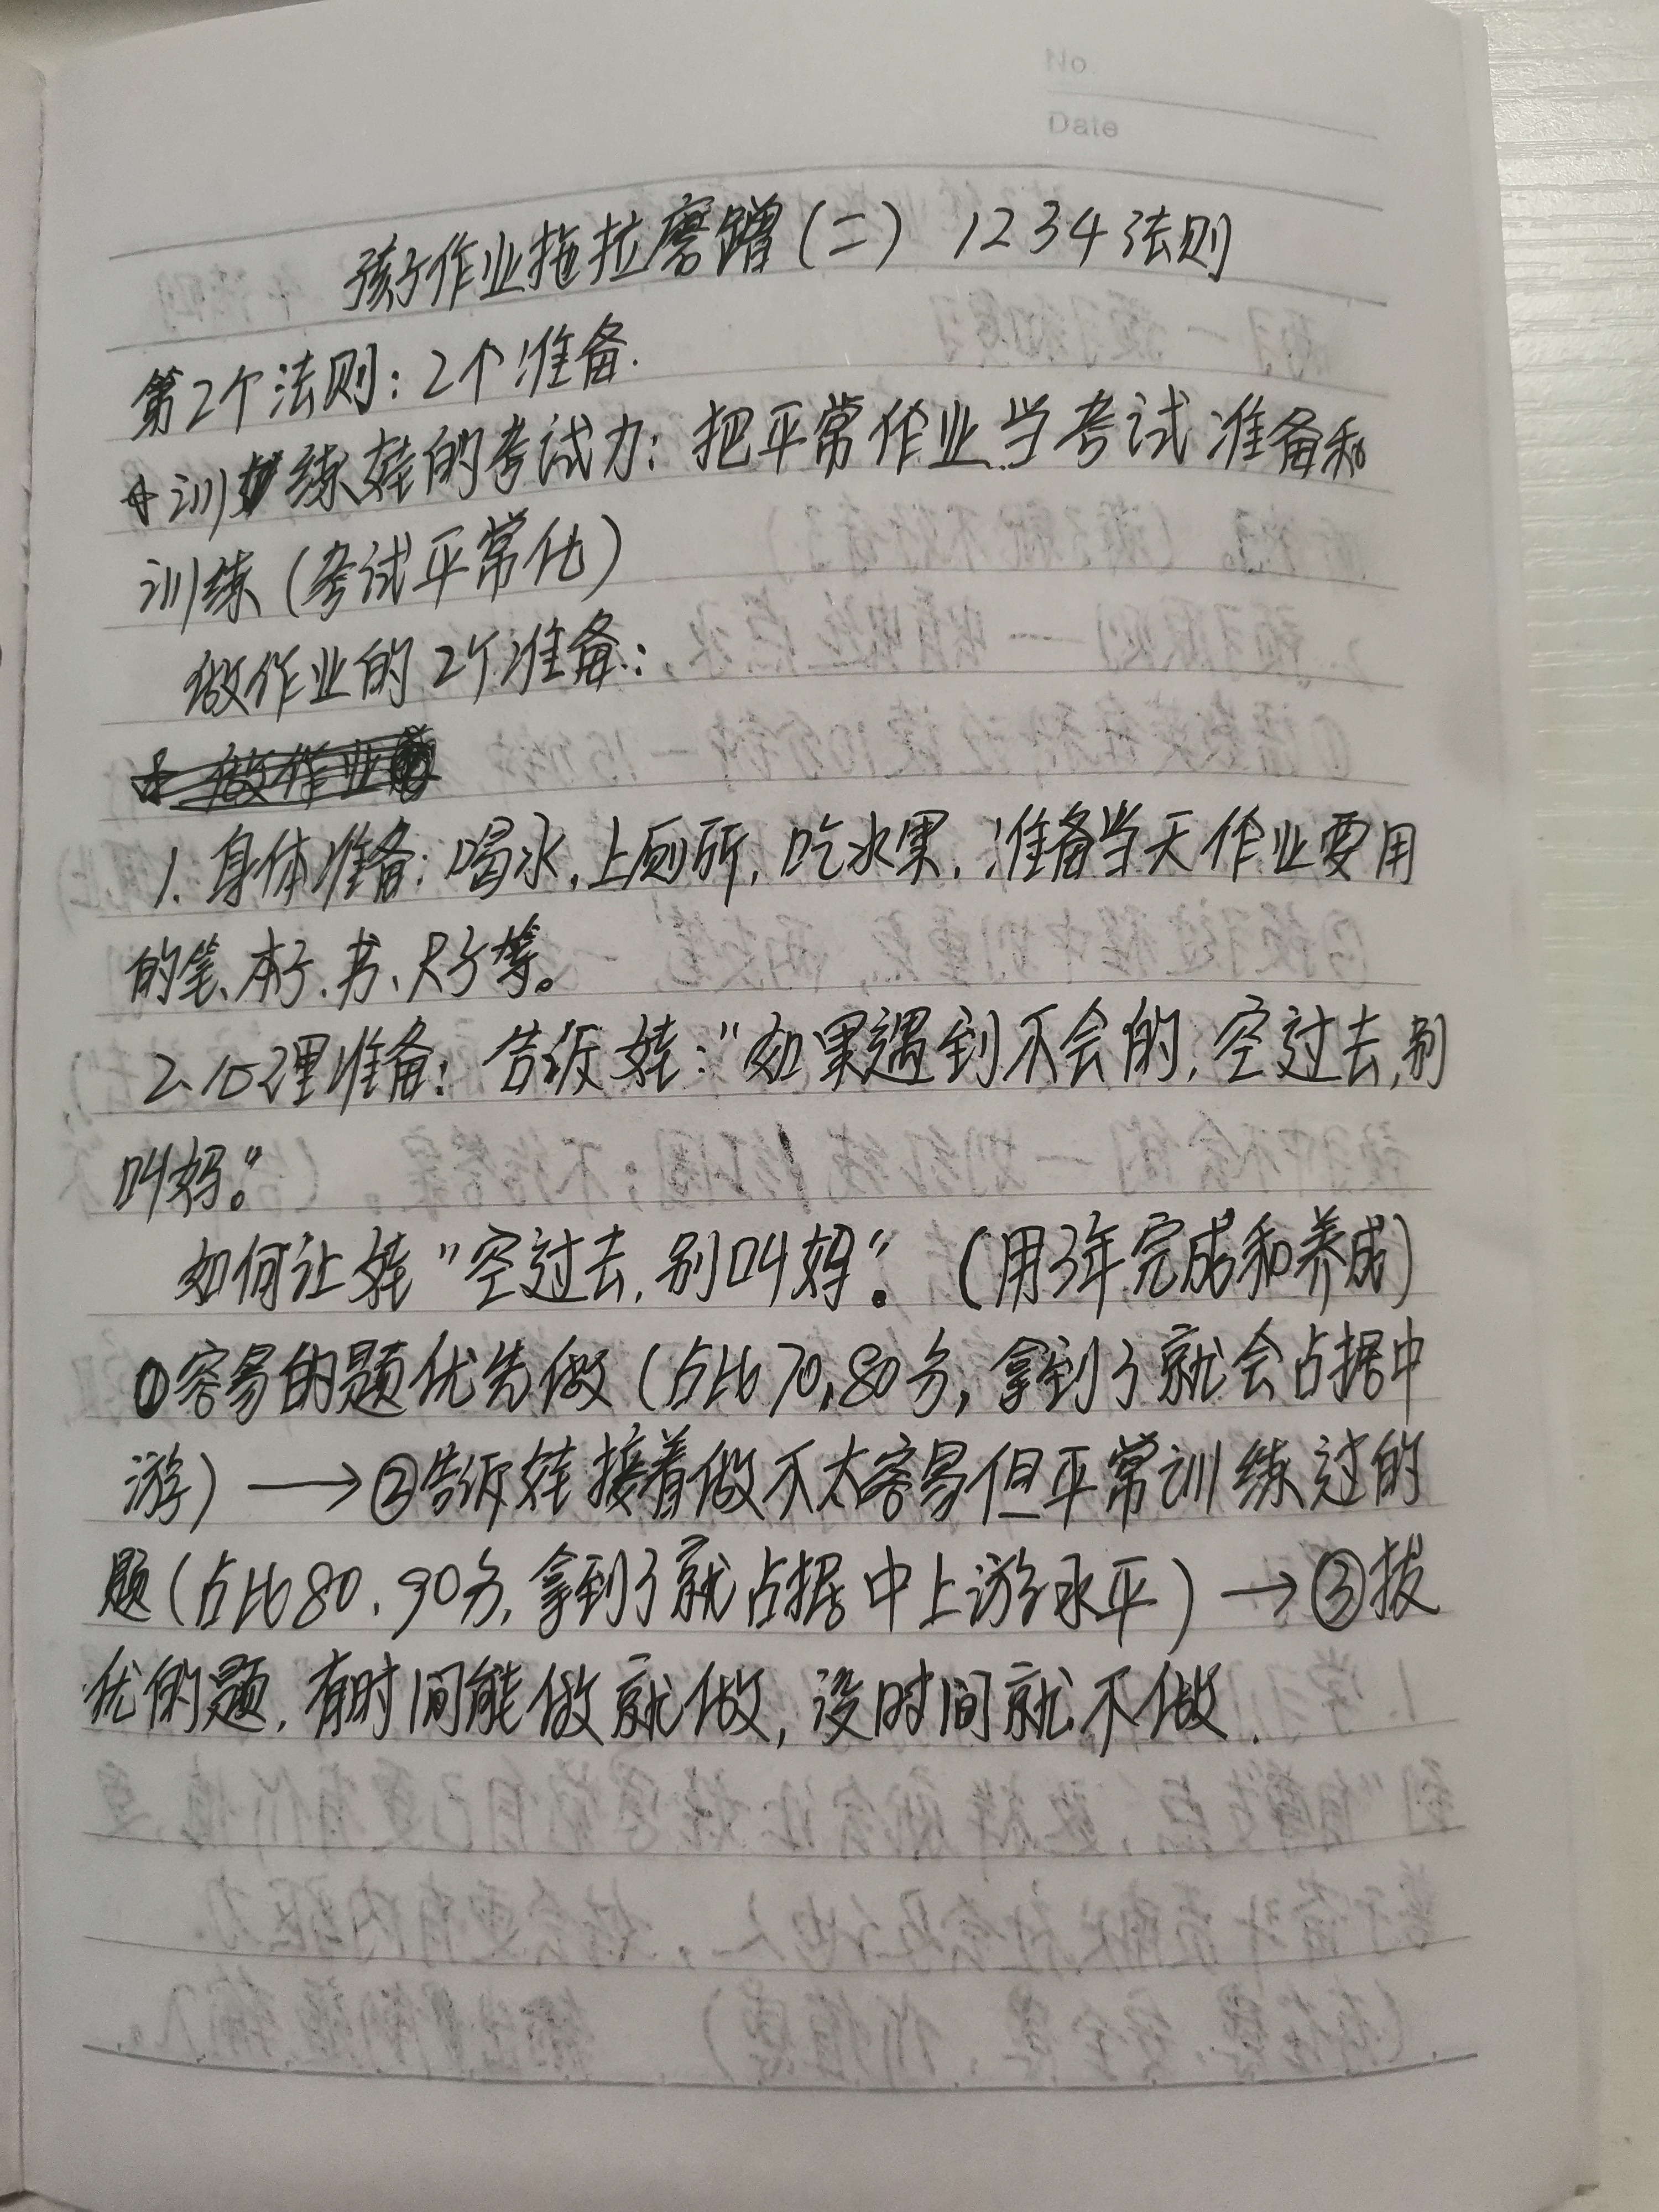 No.
Date
孩子作业拖拉磨蹭(二) 1234法则
第2个法则:2个准备.
训练娃的考试力:把平常作业当考试准备和
训练(考试平常化)
做作业的2个准备:
1.身体准备:喝水,上厕所,吃水果,准备当天作业要用
的笔、本子、书、尺子等。
2、心理准备:告诉娃:"如果遇到不会的,空过去,别
叫妈。"
如何让娃"空过去,别叫妈"。(用3年完成和养成)
①容易的题优先做(占比70,80分,拿到了就会占据中
游)→②告诉娃接着做不太容易但平常训练过的
题(占比80、90分,拿到了就占据中上游水平)→③拔
优的题,有时间能做就做,没时间就不做.